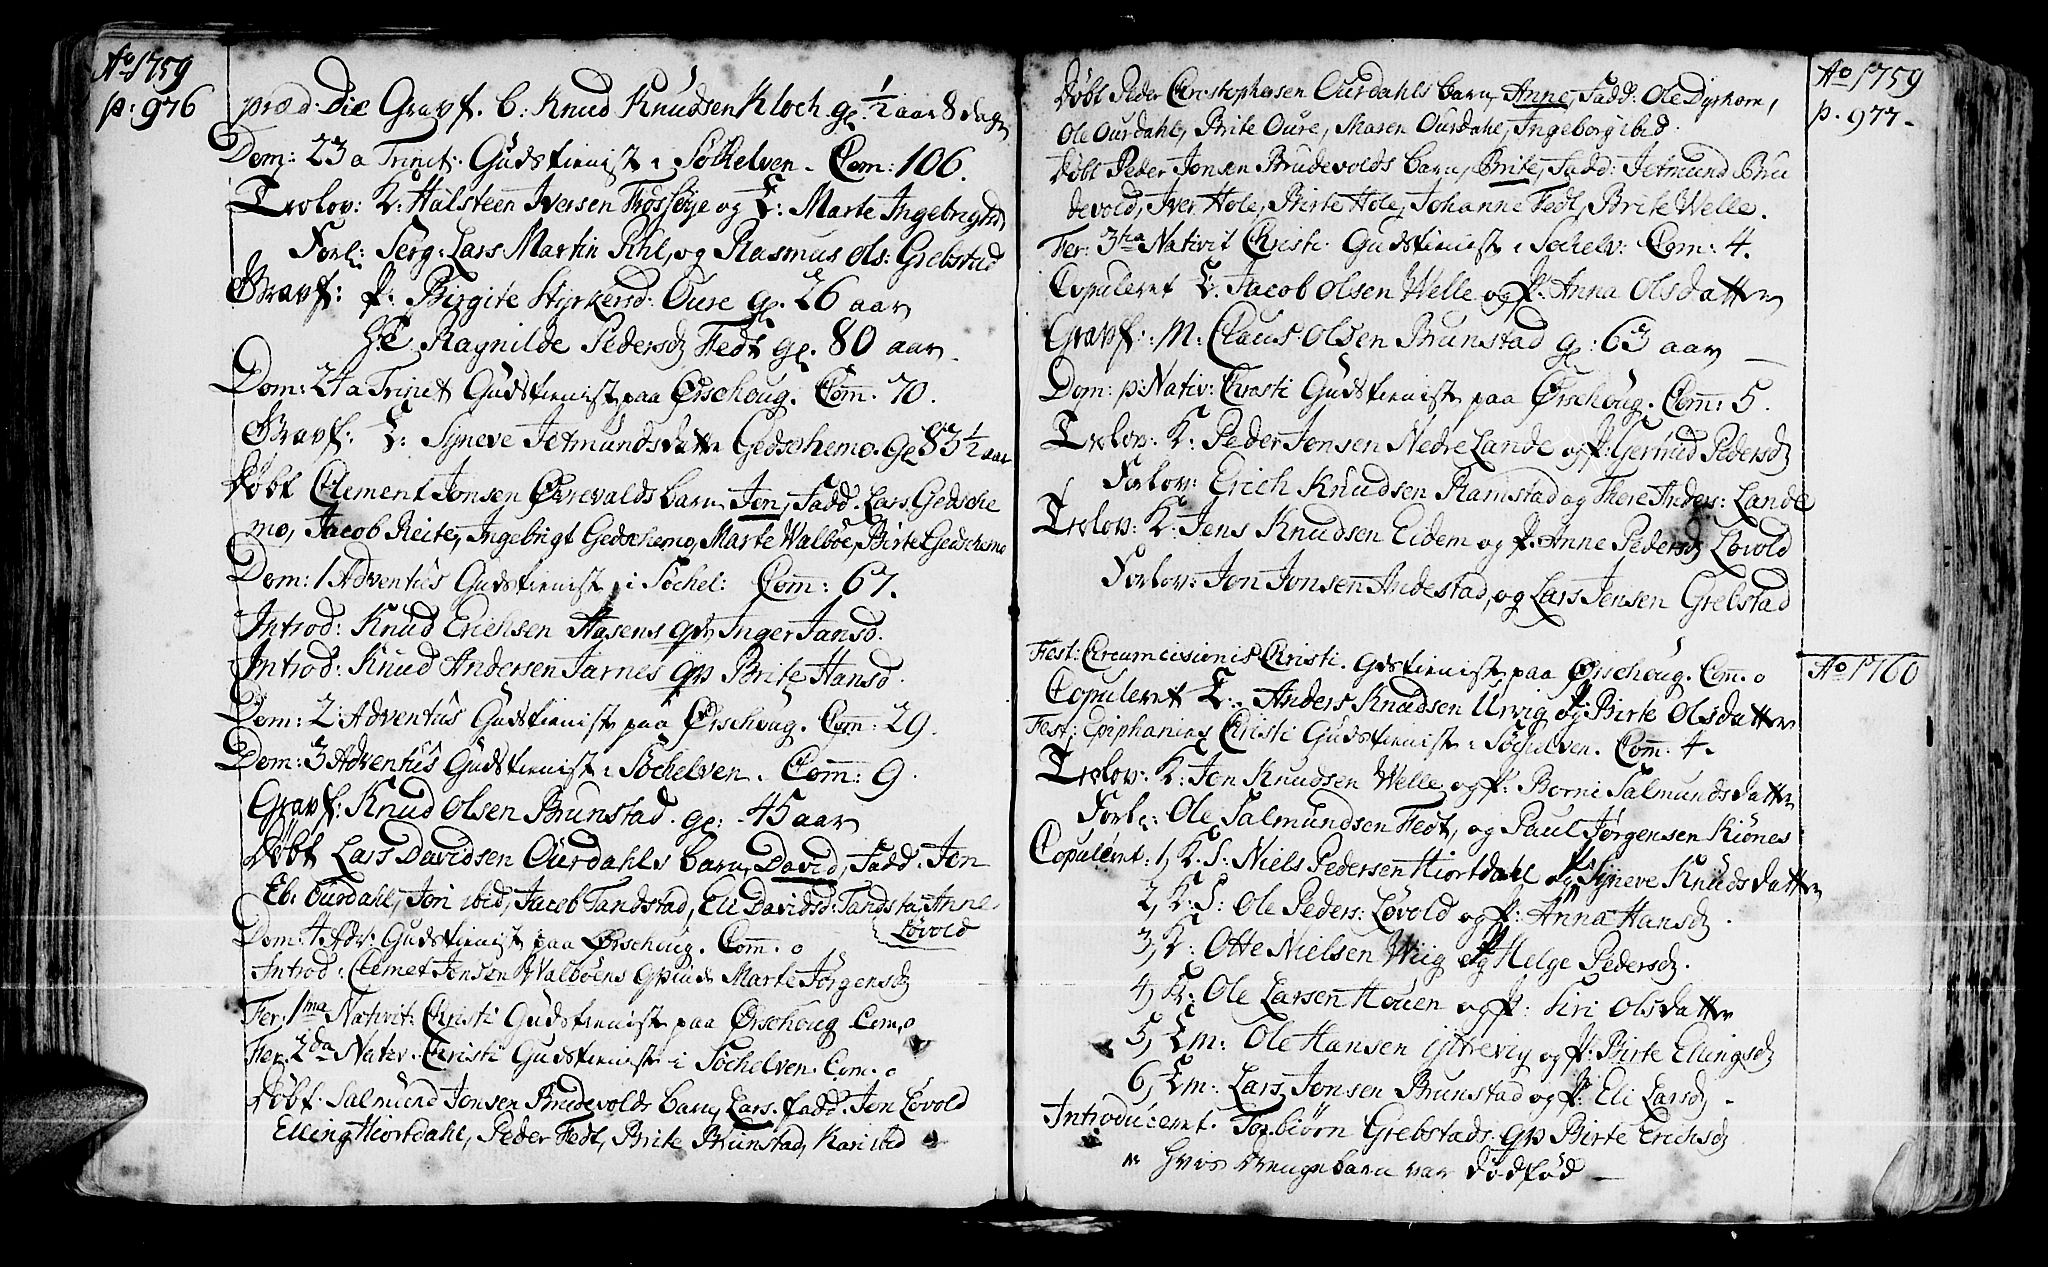 Ao 1759
p: 976
præd. Die Gravf. b: Knud Knudsen Kloch gl. ½ aar 8 dagr
Dom: 23 a Trinit: Gudstienist i Söchelven. Com: 106.
Trolov: K: Halsteen Iversen og L: Marte Ingebrigtsd
Forl: Serg: Lars Martin Pihl, og Rasmus Ols: Grebstad
Gravf: P: Birgite Styrkersd: Oure gl. 26 aar
Ragnilde Pedersd Fedt gl. 80 aar.
Dom: 24 a Trinit Gudstienist paa Ørschoug. Com. 70.
Gravf: L: Syneve Jetmundsdatter Gedschemo. gl 83½ aar
Döbt Clement Jonsen Øvrevalds barn, Jon, Fadd. Lars Gedsche
mo, Jacob Reite, Ingebrigt Gedschemo, Marte Walböe, Birte Gedschemo
Dom: 1 Adventus Gudstienist i Söchel: Com: 67.
Introd: Knud Erichsen Aasens qv Inger Jansd.
Introd: Knud Andersen Jarnes qv Brite Hansd.
Dom: 2 Adventus Gudstienist paa Ørschoug. Com: 29.
Dom: 3 Adventus Gudstienist i Söchelven. Com: 9.
Gravf: Knud Olsen Brunstad. gl: 45 aar
Döbt Lars Davidsen Ourdahls barn, David, Fadd. Jon
Eb: Ourdahl, Jon ibid, Jacob Tandstad, Eli Davidsd: Tandsta: Anne
Lövold
Dom: 4 Adv: Gudstienist paa Ørschoug. Com. 0
Introd: Clemet Jensen Walböens Marte Jörgensd
Fer. 1ma Nativit: Christi Gudstienist paa Ørschoug Com. 0
Fer. 2da Nativ. Christi Gudstienist i Söchelven. Com. 0
Döbt. Salmund Jonsen Brudevolds barn, Lars. fadd. Jon Lövold
Elling Hiortdahl, Peder Fedt, Brite Brunstad, Kari ibid
Ao 1759
p. 977
Döbt Peder Christophersen Ourdahls barn, Anne, Fadd: Ole Dyrhom,
Ole Ourdahl, Brite Oure, Maren Ourdahl, Ingeborg ibid.
Döbt Peder Jonsen Brudevolds barn, Brite, Fadd: Jetmund Bru
devold, Iver Hole, Birte Hole, Johanne Fedt, Brite Welle.
Fer: 3tia Nativit Christi. Gudstienist i Söchelv: Com: 4.
Copuleret L. Jacob Olsen Welle og P: Anna Olsdatter
Gravf: M: Claus Olsen Brunstad gl: 63 aar
Dom: p: Nativ: Christi Gudstienist paa Ørschoug. Com: 5.
Trolov: K: Peder Jensen Nedre Lande og P: Gertrud Pedersd
Forlov: Erich Knudsen Ramstad og Thore Anders: Lande
Trolov: K: Jens Knudsen Eidem og P: Anne Pedersd Lövold
Forlov: Jon Jonsen Andestad, og Lars Jensen Grebstad
Ao 1760
Fest: Circumcisionis Christi. Gudstienist paa Ørschoug. Com. 0
Copuleret L. Anders Knudsen Urvig og P: Birte Olsdatter
Fest: Epiphanias Christi Gudstienist i Söchelven. Com: 4.
Trolov: K: Jon Knudsen Welle og P: Borni Salmundsdatter
Forl: Ole Salmundsen Fedt, og Paul Jörgensen Kiönes
Copuleret: 1, K. S: Niels Pedersen Hiortdahl og P: Syneve Knudsdatter
2, K: S: Ole Peders: Lövold og P: Anna Hansd.
3, K: Otte Nielsen Wiig og P: Helge Pedersd.
4, K: Ole Larsen Houen og P: Siri Olsdatter
5, Lm: Ole Hansen og P: Birte Ellingsd
6, Lm: Lars Jonsen Brunstad og P: Eli Larsd
Introduceret. Torbiörn Grebstads qv Birte Erichsd
hvis Drengebarn var Dödföd